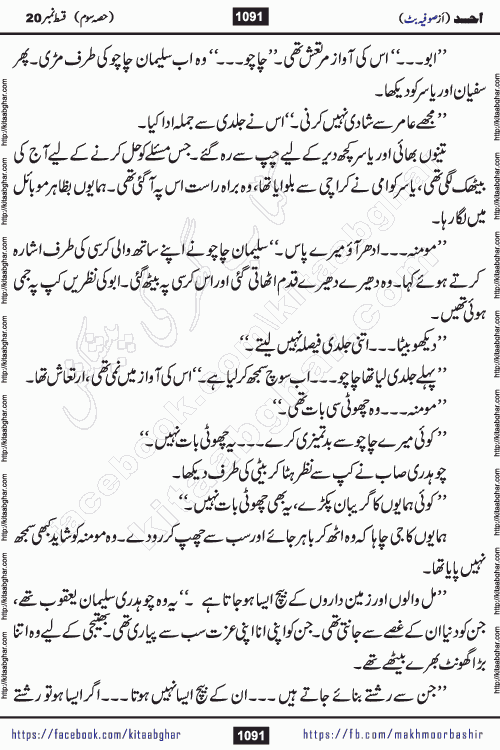 اَحد (از صوفیہ بٹ) 1091 (حصہ سوم) قسط نمبر 20
’’ابو۔۔۔‘‘ اس کی آواز مرتعش تھی۔ ’’چاچو۔۔۔‘‘ وہ اب سلیمان چاچو کی طرف مڑی۔ پھر
سفیان اور یاسر کو دیکھا۔
’’مجھے عامر سے شادی نہیں کرنی۔‘‘ اس نے جلدی سے جملہ ادا کیا۔
تینوں بھائی اور یاسر کچھ دیر کے لیے چپ سے رہ گئے۔ جس مسئلے کو حل کرنے کے لیے آج کی
بیٹھک لگی تھی، یاسر کو امی نے کراچی سے بلوایا تھا، وہ براہ راست اس پہ آ گئی تھی۔ ہمایوں بظاہر موبائل
میں لگا رہا۔
’’مومنہ۔۔۔ ادھر آؤ میرے پاس۔‘‘ سلیمان چاچو نے اپنے ساتھ والی کرسی کی طرف اشارہ
کرتے ہوئے کہا۔ وہ دھیرے دھیرے قدم اٹھاتی گئی اور اس کرسی پہ بیٹھ گئی۔ ابو کی نظریں کپ پہ جمی
ہوئی تھیں۔
’’دیکھو بیٹا۔۔۔ اتنی جلدی فیصلہ نہیں لیتے۔‘‘
’’پہلے جلدی لیا تھا چاچو۔۔۔ اب سوچ سمجھ کر لیا ہے۔‘‘ اس کی آواز میں نمی تھی، ارتعاش تھا۔
’’مومنہ۔۔۔ وہ چھوٹی سی بات تھی۔‘‘
’’کوئی میرے چاچو سے بدتمیزی کرے۔۔۔ یہ چھوٹی بات نہیں۔‘‘
چوہدری صاب نے کپ سے نظر ہٹا کر بیٹی کی طرف دیکھا۔
’’کوئی ہمایوں کا گریبان پکڑے، یہ بھی چھوٹی بات نہیں۔‘‘
ہمایوں کا جی چاہا کہ وہ اٹھ کر باہر جائے اور سب سے چھپ کر رو دے۔ وہ مومنہ کو شاید کبھی سمجھ
نہیں پایا تھا۔
’’مل والوں اور زمین داروں کے بیچ ایسا ہو جاتا ہے۔‘‘ یہ وہ چوہدری سلیمان یعقوب تھے،
جن کو دنیا ان کے غصے سے جانتی تھی۔ جن کو اپنی انا اپنی عزت سب سے پیاری تھی۔ بھتیجی کے لیے وہ اتنا
بڑا گھونٹ بھرے بیٹھے تھے۔
’’جن سے رشتے بنائے جاتے ہیں۔۔۔ ان کے بیچ ایسا نہیں ہوتا۔۔۔ اگر ایسا ہو تو رشتے
https://facebook.com/kitaabghar 1091 https://fb.com/makhmoorbashir
http://kitaabghar.com